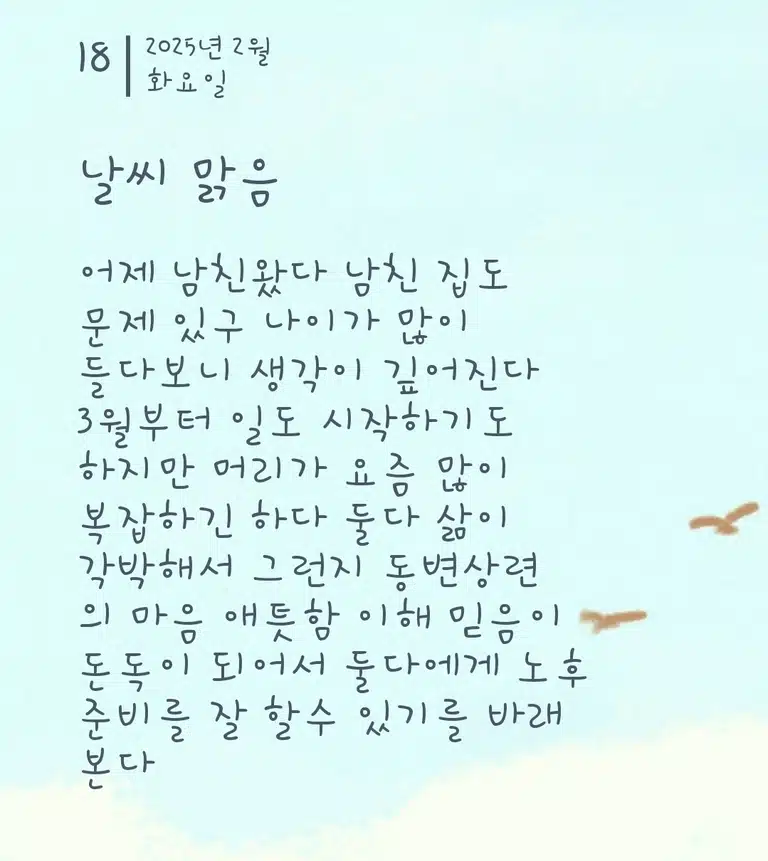 18
2025년 2월
화요일
날씨 맑음
어제 남친왔다 남친 집도
문제 있구 나이가 많이
들다보니 생각이 깊어진다
3월부터 일도 시작하기도
하지만 머리가 요즘 많이
복잡하긴 하다 둘다 삶이
각박해서 그런지 동변상련
의 마음 애틋함 이해 믿음이
돈독이 되어서 둘다에게 노후
준비를 잘 할수 있기를 바래
본다